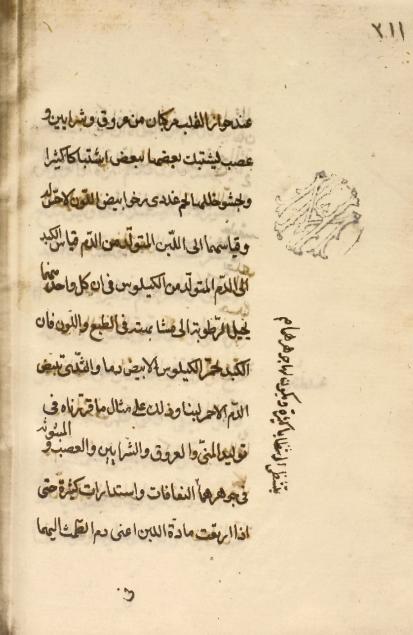 ٢١١
عند حوا زالقلب مركبان من عروق وشرايين و
عصب يشتبك بعضها ببعض اشتباكا كثيرا
ويحشو خللها لحم غددى رخو ابيض اللون لاحسّ له
وقياسهما الى اللبن المتولّد من الدم قياس الكبد
الى الدم المتولّد من الكيلوس فان كل واحد منهما
يحيل الرطوبة الى مشابهته فى الطبع واللون فان
الكبد تحمّر الكيلوس الابيض دما والثدى تبيّض
الدم الاحمر لبنا وذلك على مثال ما قررناه فى
توليد المنىّ والعروق والشرايين والعصب المبثوثة
فى جوهرهما التفافات واستدارات كثيرة حتى
اذا ارتقت مادّة اللبن اعنى دم الطمث اليهما